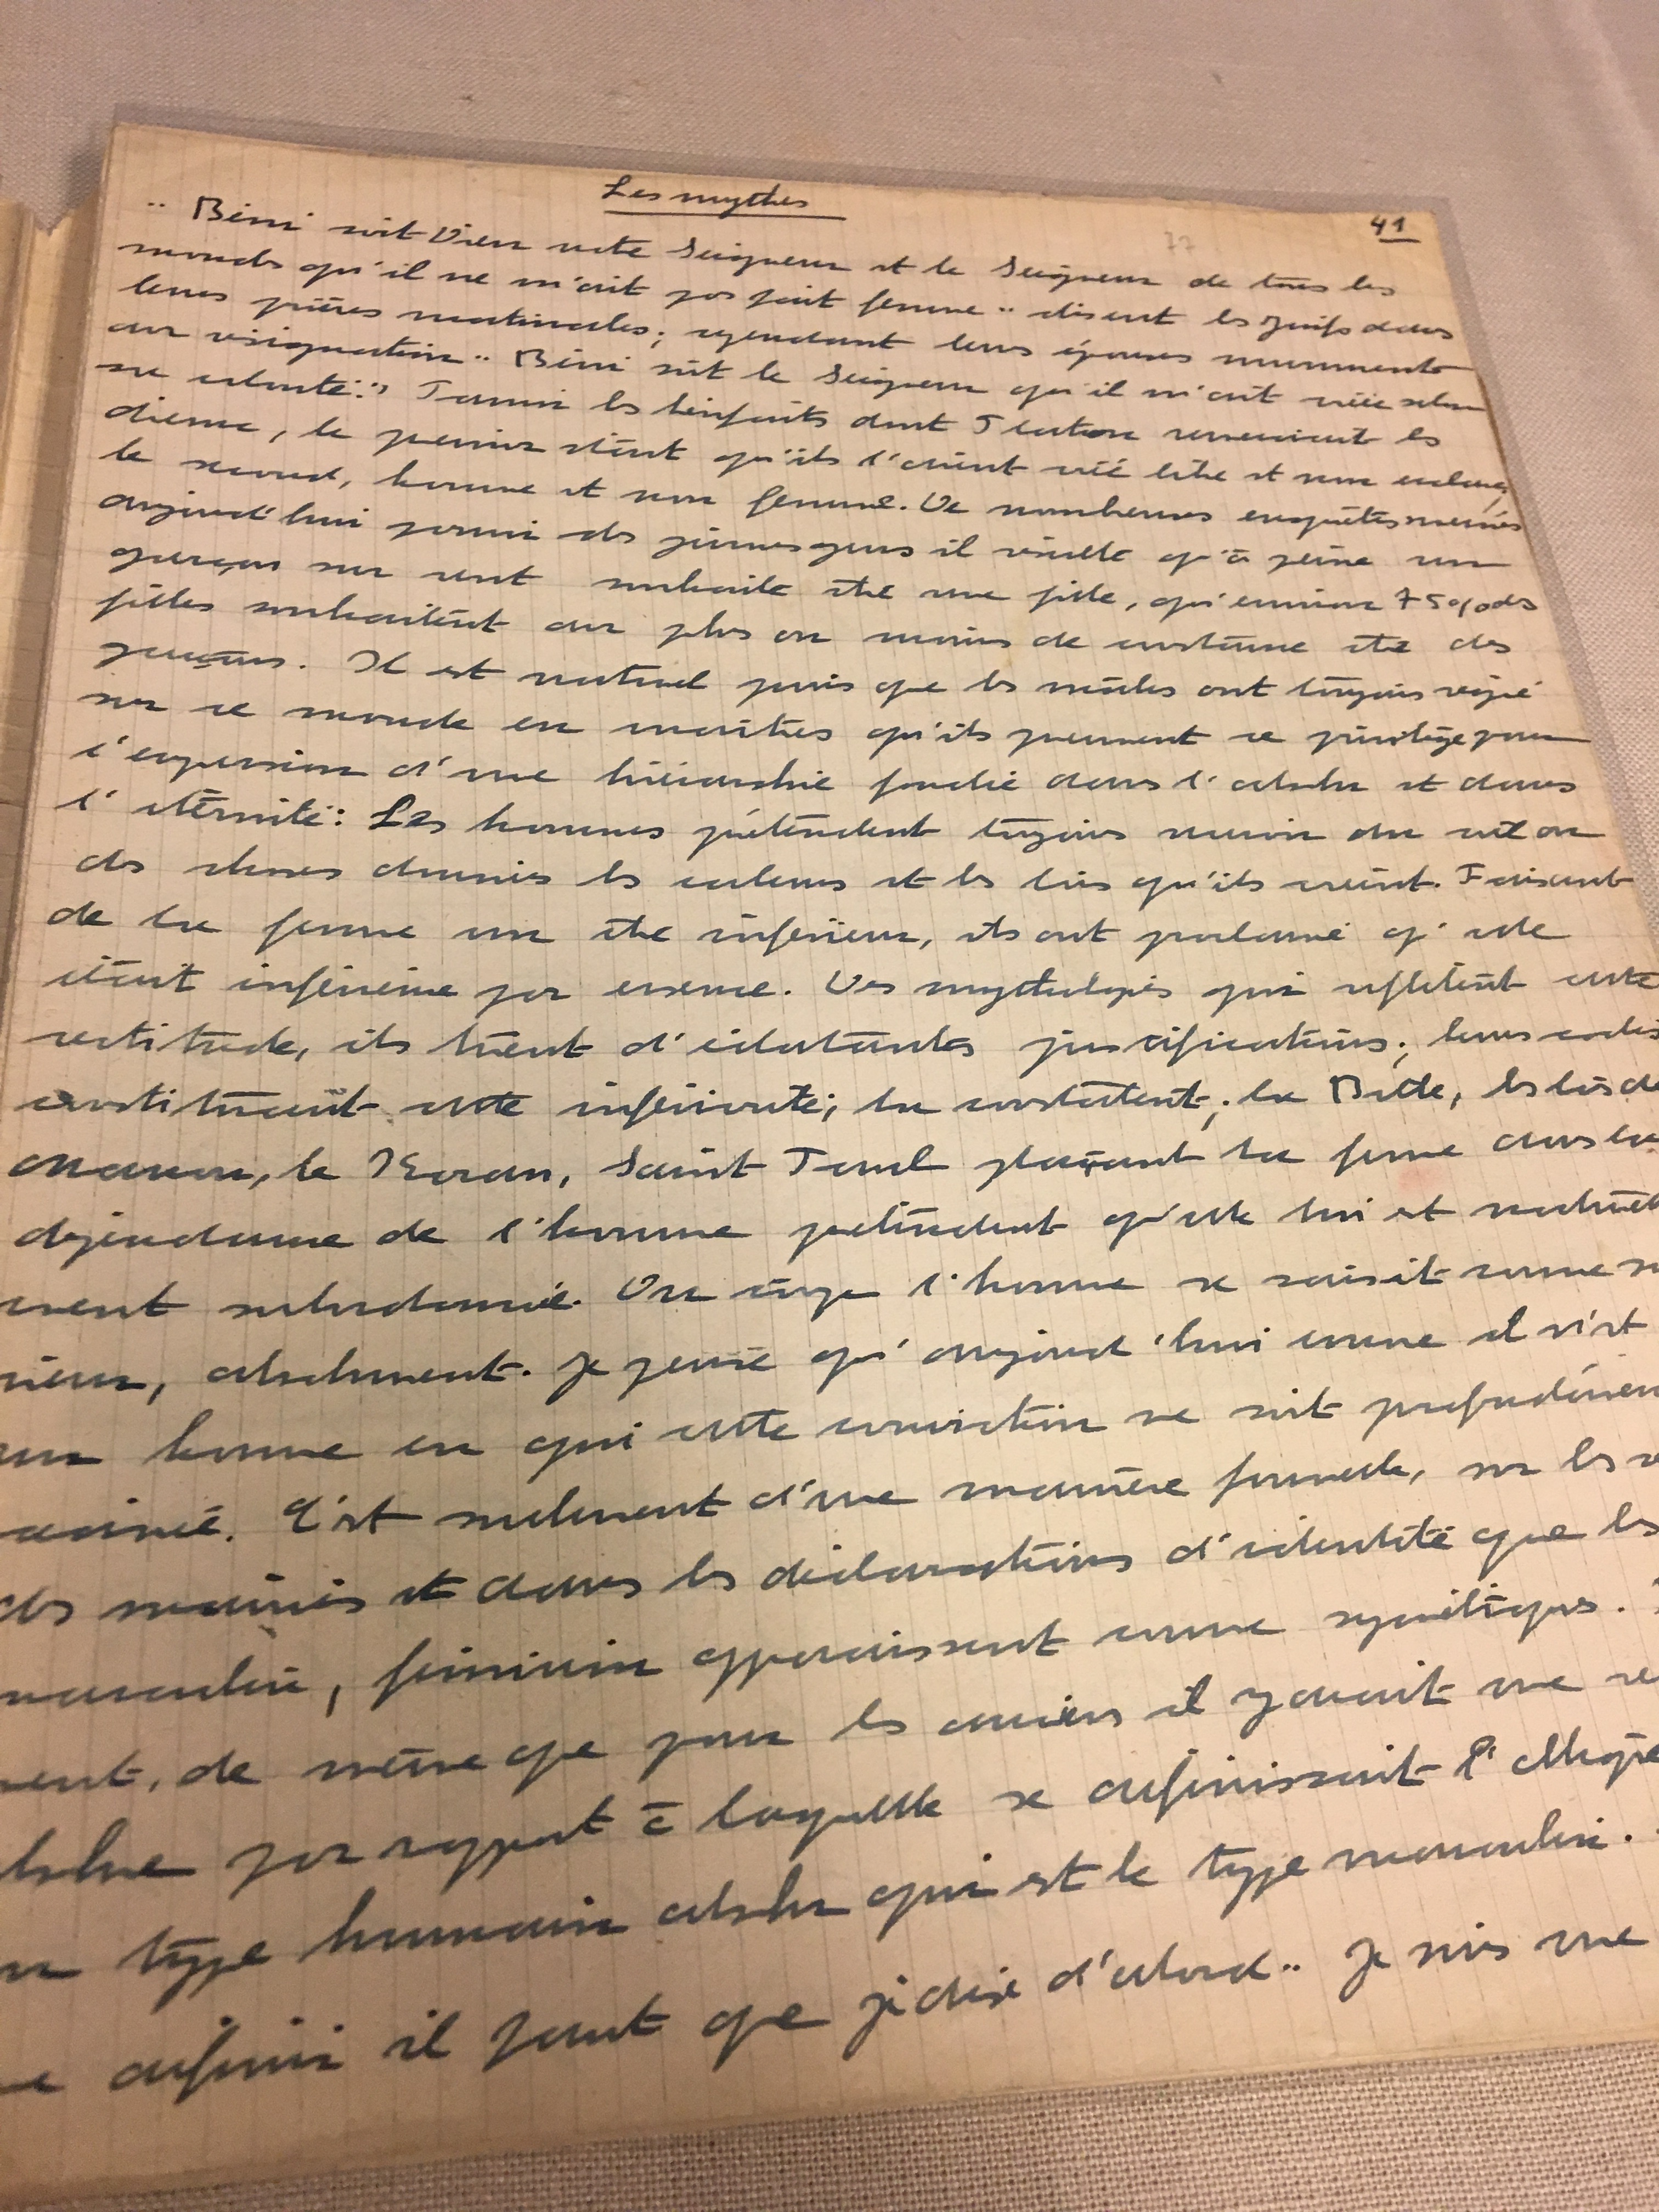 Les mythes
41
77
" Béni soit Dieu notre Seigneur et le Seigneur de tous les
mondes qu'il ne m'ait pas fait femme " disent les Juifs dans
leurs prières matinales; cependant leurs épouses murmurent
avec résignation " Béni soit le Seigneur qu'il m'ait créée selon
sa volonté." Parmi les bienfaits dont Platon remerciait les
dieux, le premier était qu'ils l'aient créé libre et non esclave,
le second, homme et non femme. De nombreuses enquêtes menées
aujourd'hui parmi des jeunes gens il résulte qu'à peine un
garçon sur cent souhaite être une fille, qu'environ 75% des
filles souhaitent avec plus ou moins de constance être des
garçons. Il est naturel puis que les mâles ont toujours régné
sur ce monde en maîtres qu'ils prennent ce privilège pour
l'expression d'une hiérarchie fondée dans l'absolu et dans
l'éternité: Les hommes prétendent toujours saisir au ciel ou
des choses données les valeurs et les lois qu'ils créent. Faisant
de la femme un être inférieur, ils ont proclamé qu'elle
était inférieure par essence. Des mythologies qui reflètent cette
certitude, ils tirent d'éclatantes justifications; leurs codes
constituent cette infériorité; la constatent; la Bible, les lois de
Manou, le Koran, Saint Paul plaçant la femme dans la
dépendance de l'homme prétendent qu'elle lui est naturelle
ment subordonnée. l'homme se saisit comme su
rieur, absolument. Je pense qu'aujourd'hui comme il n'est
un homme en qui cette conviction ne soit profondémen
racinée. C'est seulement d'une manière formelle, sur les r
des mairies et dans les déclarations d'identité que les
masculin, féminin apparaissent comme symétriques.
ment, de même que pour les anciens il y avait une ve
absolue par rapport à laquelle se définissait l'oblique
un type humain absolu qui est le type masculin.
me définir il faut que je dise d'abord " Je suis une